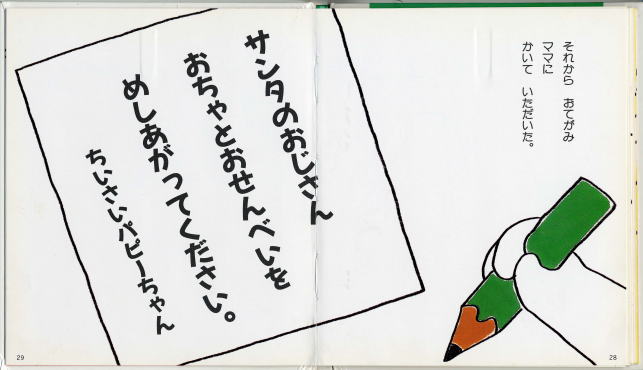 それから おてがみ
ママに
かいて いただいた。
28
サンタのおじさん
おちゃとおせんべいを
めしあがってください。
ちいさいパピーちゃん
29